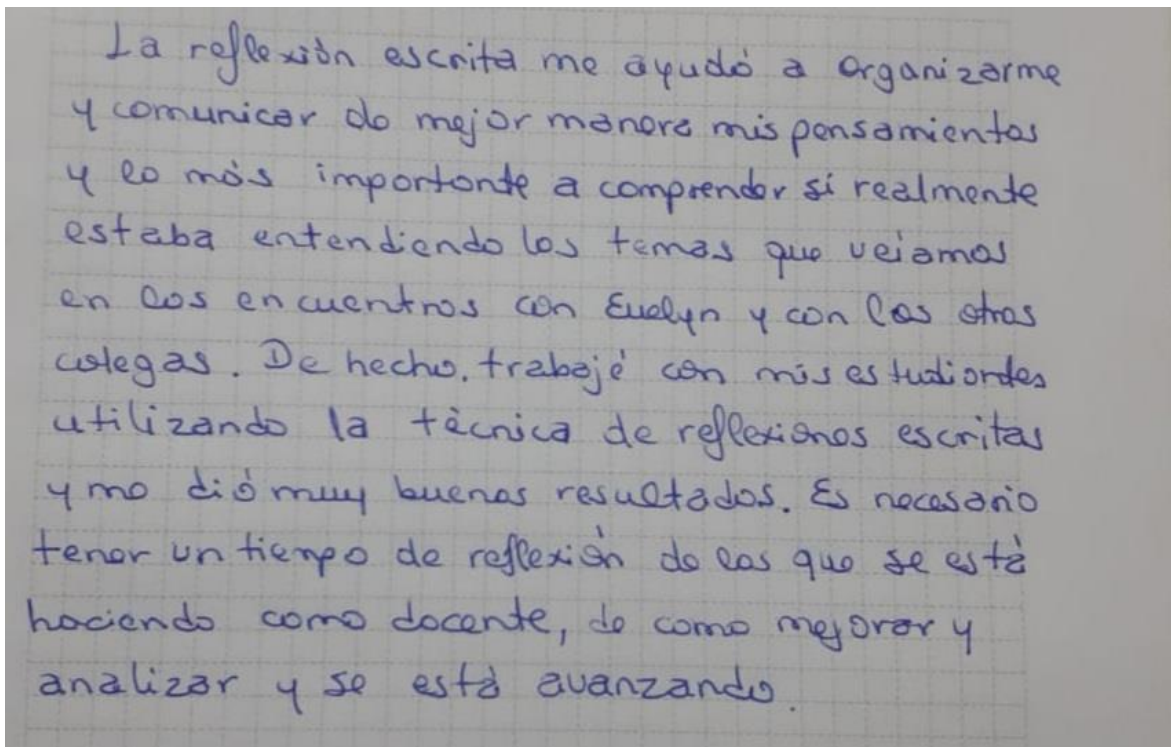 La reflexión escrita me ayudó a organizarme
y comunicar de mejor manera mis pensamientos
y lo más importante a comprender si realmente
estaba entendiendo los temas que veíamos
en los encuentros con Evelyn y con las otras
colegas. De hecho, trabajé con mis estudiantes
utilizando la técnica de reflexiones escritas
y me dió muy buenos resultados. Es necesario
tener un tiempo de reflexión de las que se está
haciendo como docente, de como mejorar y
analizar y se está avanzando.